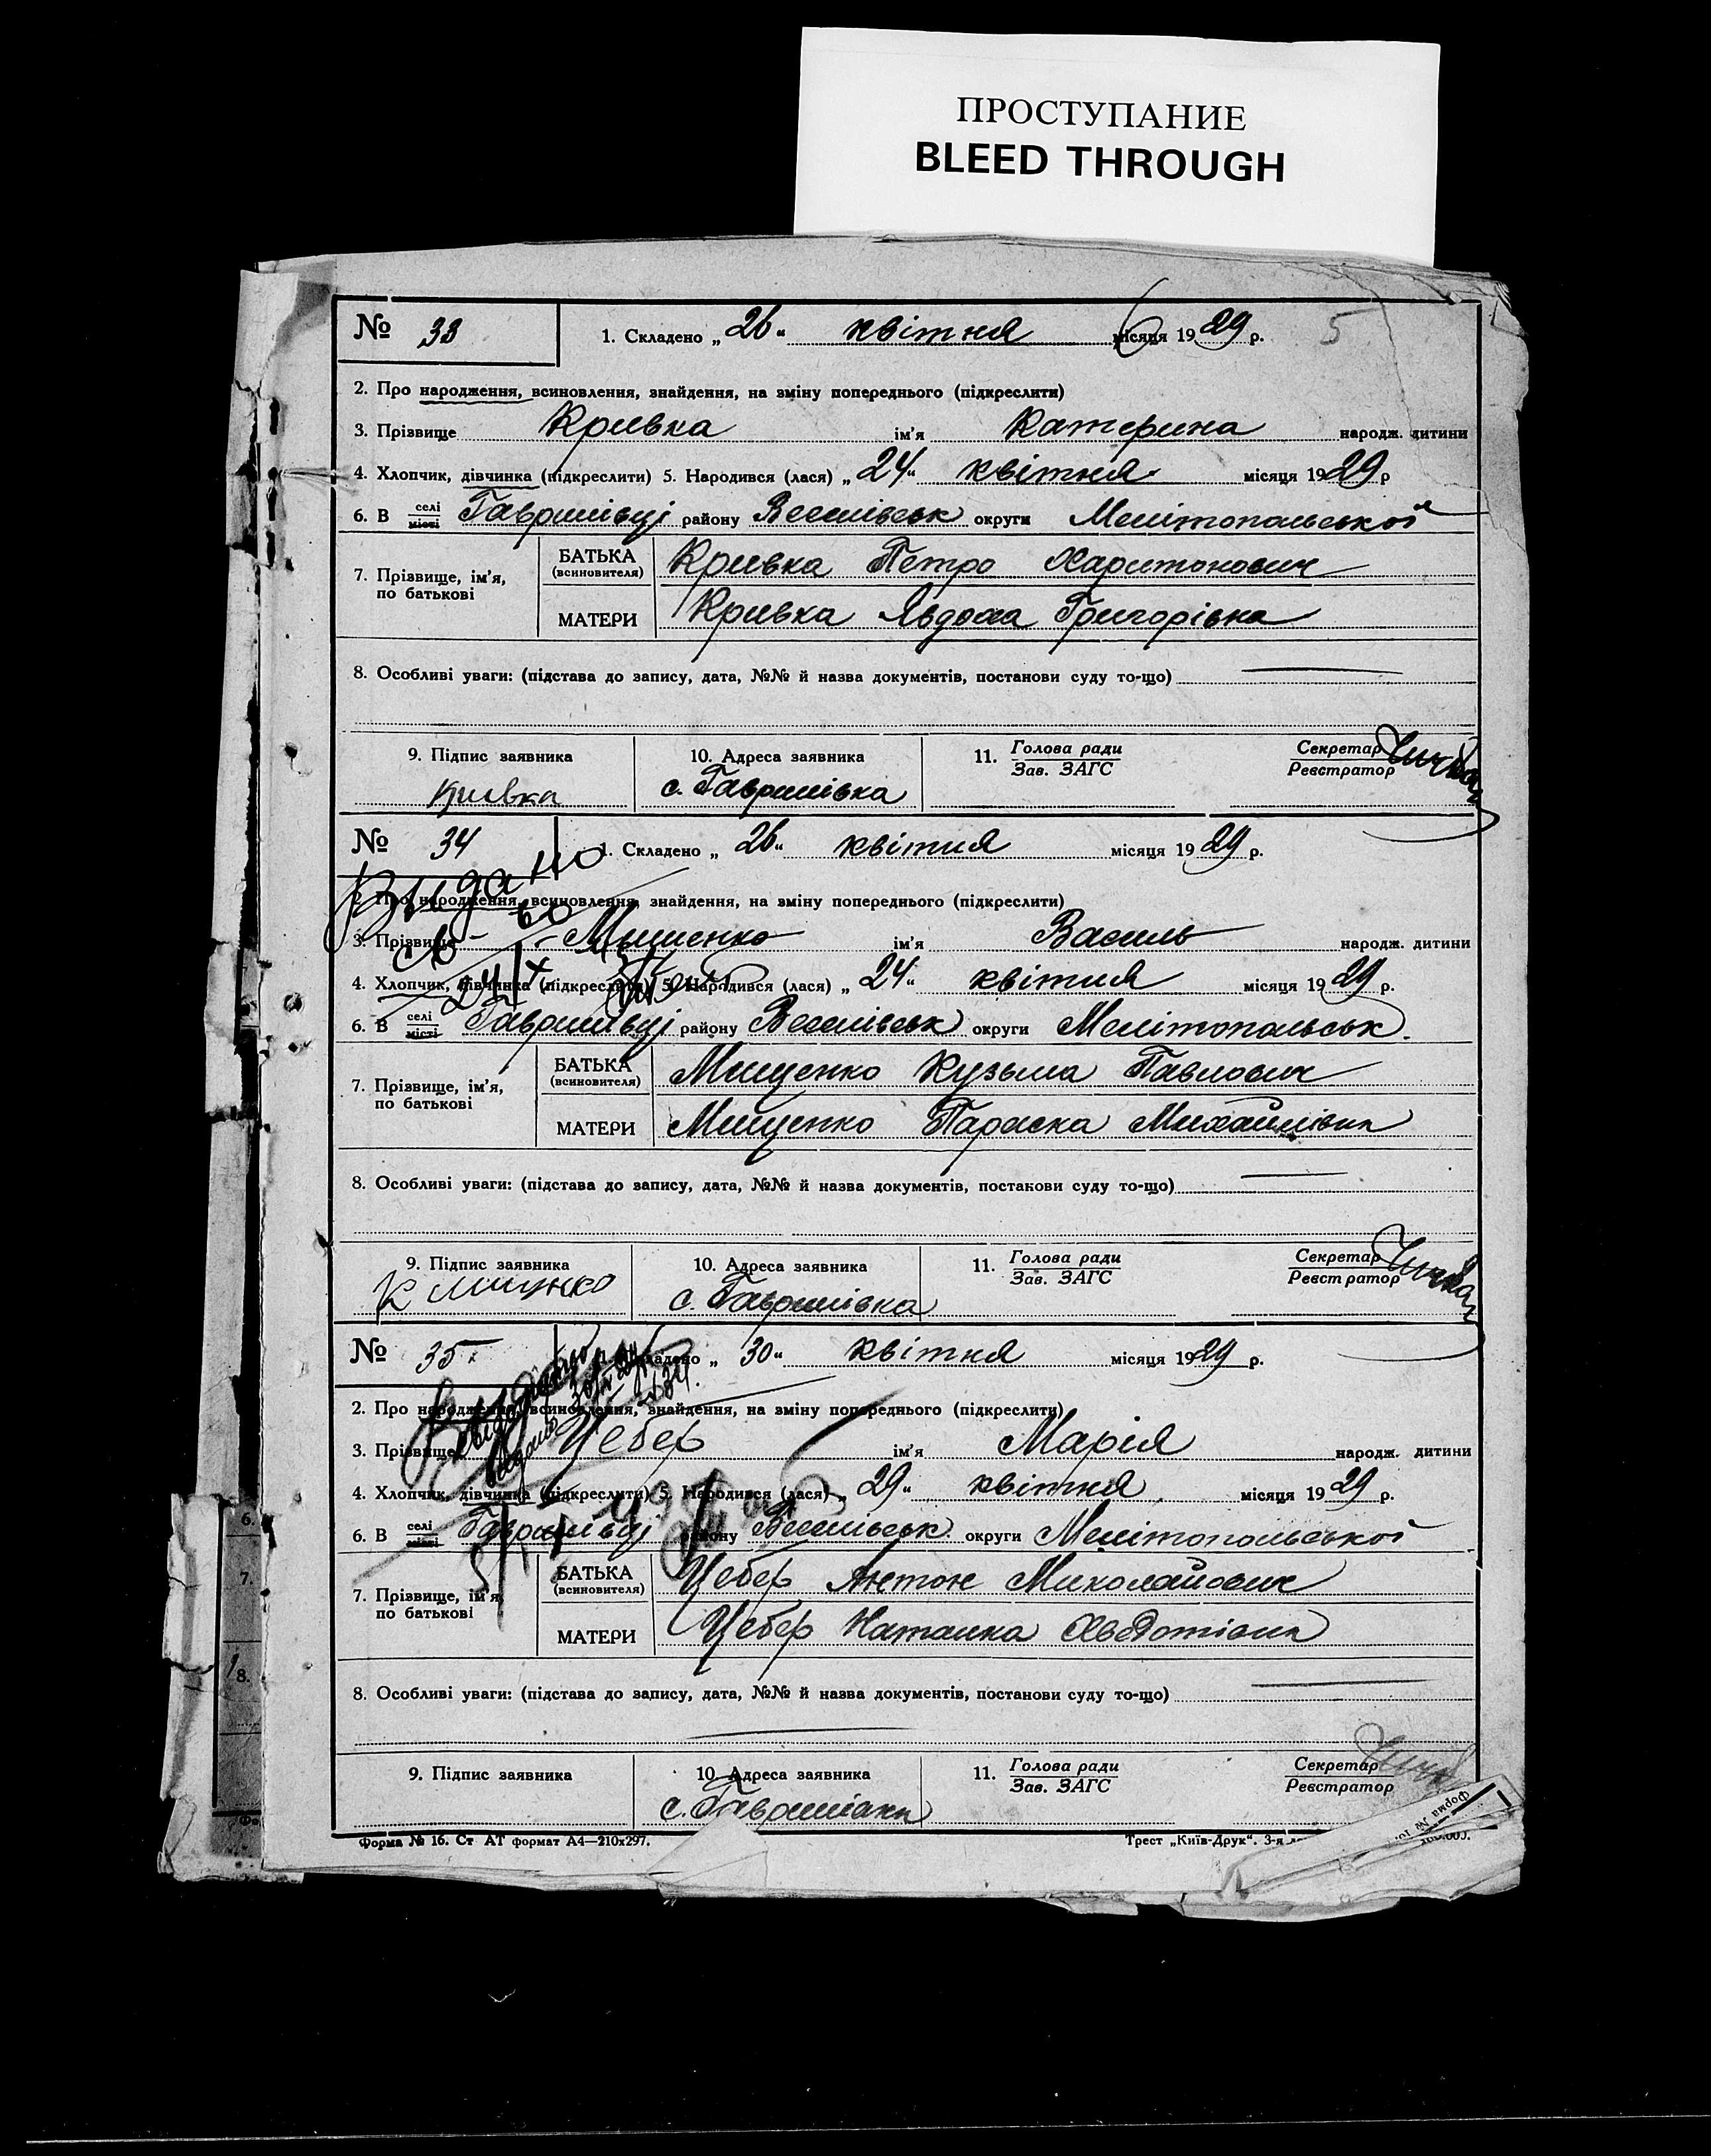 ПРОСТУПАНИЕ
BLEED THROUGH
№ 33 1. Складено „ 26 “ квітня місяця 19 29 р. 5
2. Про народження, всиновлення, знайдення, на зміну попереднього (підкреслити)
3. Прізвище Кривка ім'я Катерина народж. дитини
4. Хлопчик, дівчинка (підкреслити) 5. Народився (лася) „ 24 “ квітня місяця 19 29 р
6. В селі місті Гавришівці району Веселівськ округи Мелітопольської
7. Прізвище, ім'я, по батькові
БАТЬКА (всиновителя) Кривка Петро Харитонович
МАТЕРИ Кривка Явдоха Григорівна
8. Особливі уваги: (підстава до запису, дата, №№ й назва документів, постанови суду то-що)
9. Підпис заявника 10. Адреса заявника 11. Голова ради Зав. ЗАГС Секретар Реєстратор
Кривка с. Гавришівка
№ 34 1. Складено „ 26 “ квітня місяця 19 29 р.
Видано
2. Про народження, всиновлення, знайдення, на зміну попереднього (підкреслити)
3. Прізвище Мищенко ім'я Василь народж. дитини
4. Хлопчик, дівчинка (підкреслити) 5. Народився (лася) „ 24 “ квітня місяця 19 29 р.
6. В селі місті Гавришівці району Веселівськ округи Мелітопольськ.
7. Прізвище, ім'я, по батькові
БАТЬКА (всиновителя) Мищенко Кузьма Павлович
МАТЕРИ Мищенко Параска Михайлівна
8. Особливі уваги: (підстава до запису, дата, №№ й назва документів, постанови суду то-що)
9. Підпис заявника 10. Адреса заявника 11. Голова ради Зав. ЗАГС Секретар Реєстратор
К Мищнко с. Гавришівка
№ 35 1. Складено „ 30 “ квітня місяця 19 29 р.
2. Про народження, всиновлення, знайдення, на зміну попереднього (підкреслити)
3. Прізвище Цебер ім'я Марія народж. дитини
4. Хлопчик, дівчинка (підкреслити) 5. Народився (лася) „ 29 “ квітня місяця 19 29 р.
6. В селі місті Гавришівці району Веселівськ округи Мелітопольської
7. Прізвище, ім'я, по батькові
БАТЬКА (всиновителя) Цебер Антон Миколайович
МАТЕРИ Цебер Наталка Хведотівна
8. Особливі уваги: (підстава до запису, дата, №№ й назва документів, постанови суду то-що)
9. Підпис заявника 10. Адреса заявника 11. Голова ради Зав. ЗАГС Секретар Реєстратор
с. Гавришівка
Форма № 16. Ст АТ формат А4—210х297. Трест „Київ-Друк“. 3-я
6.
7.
8.